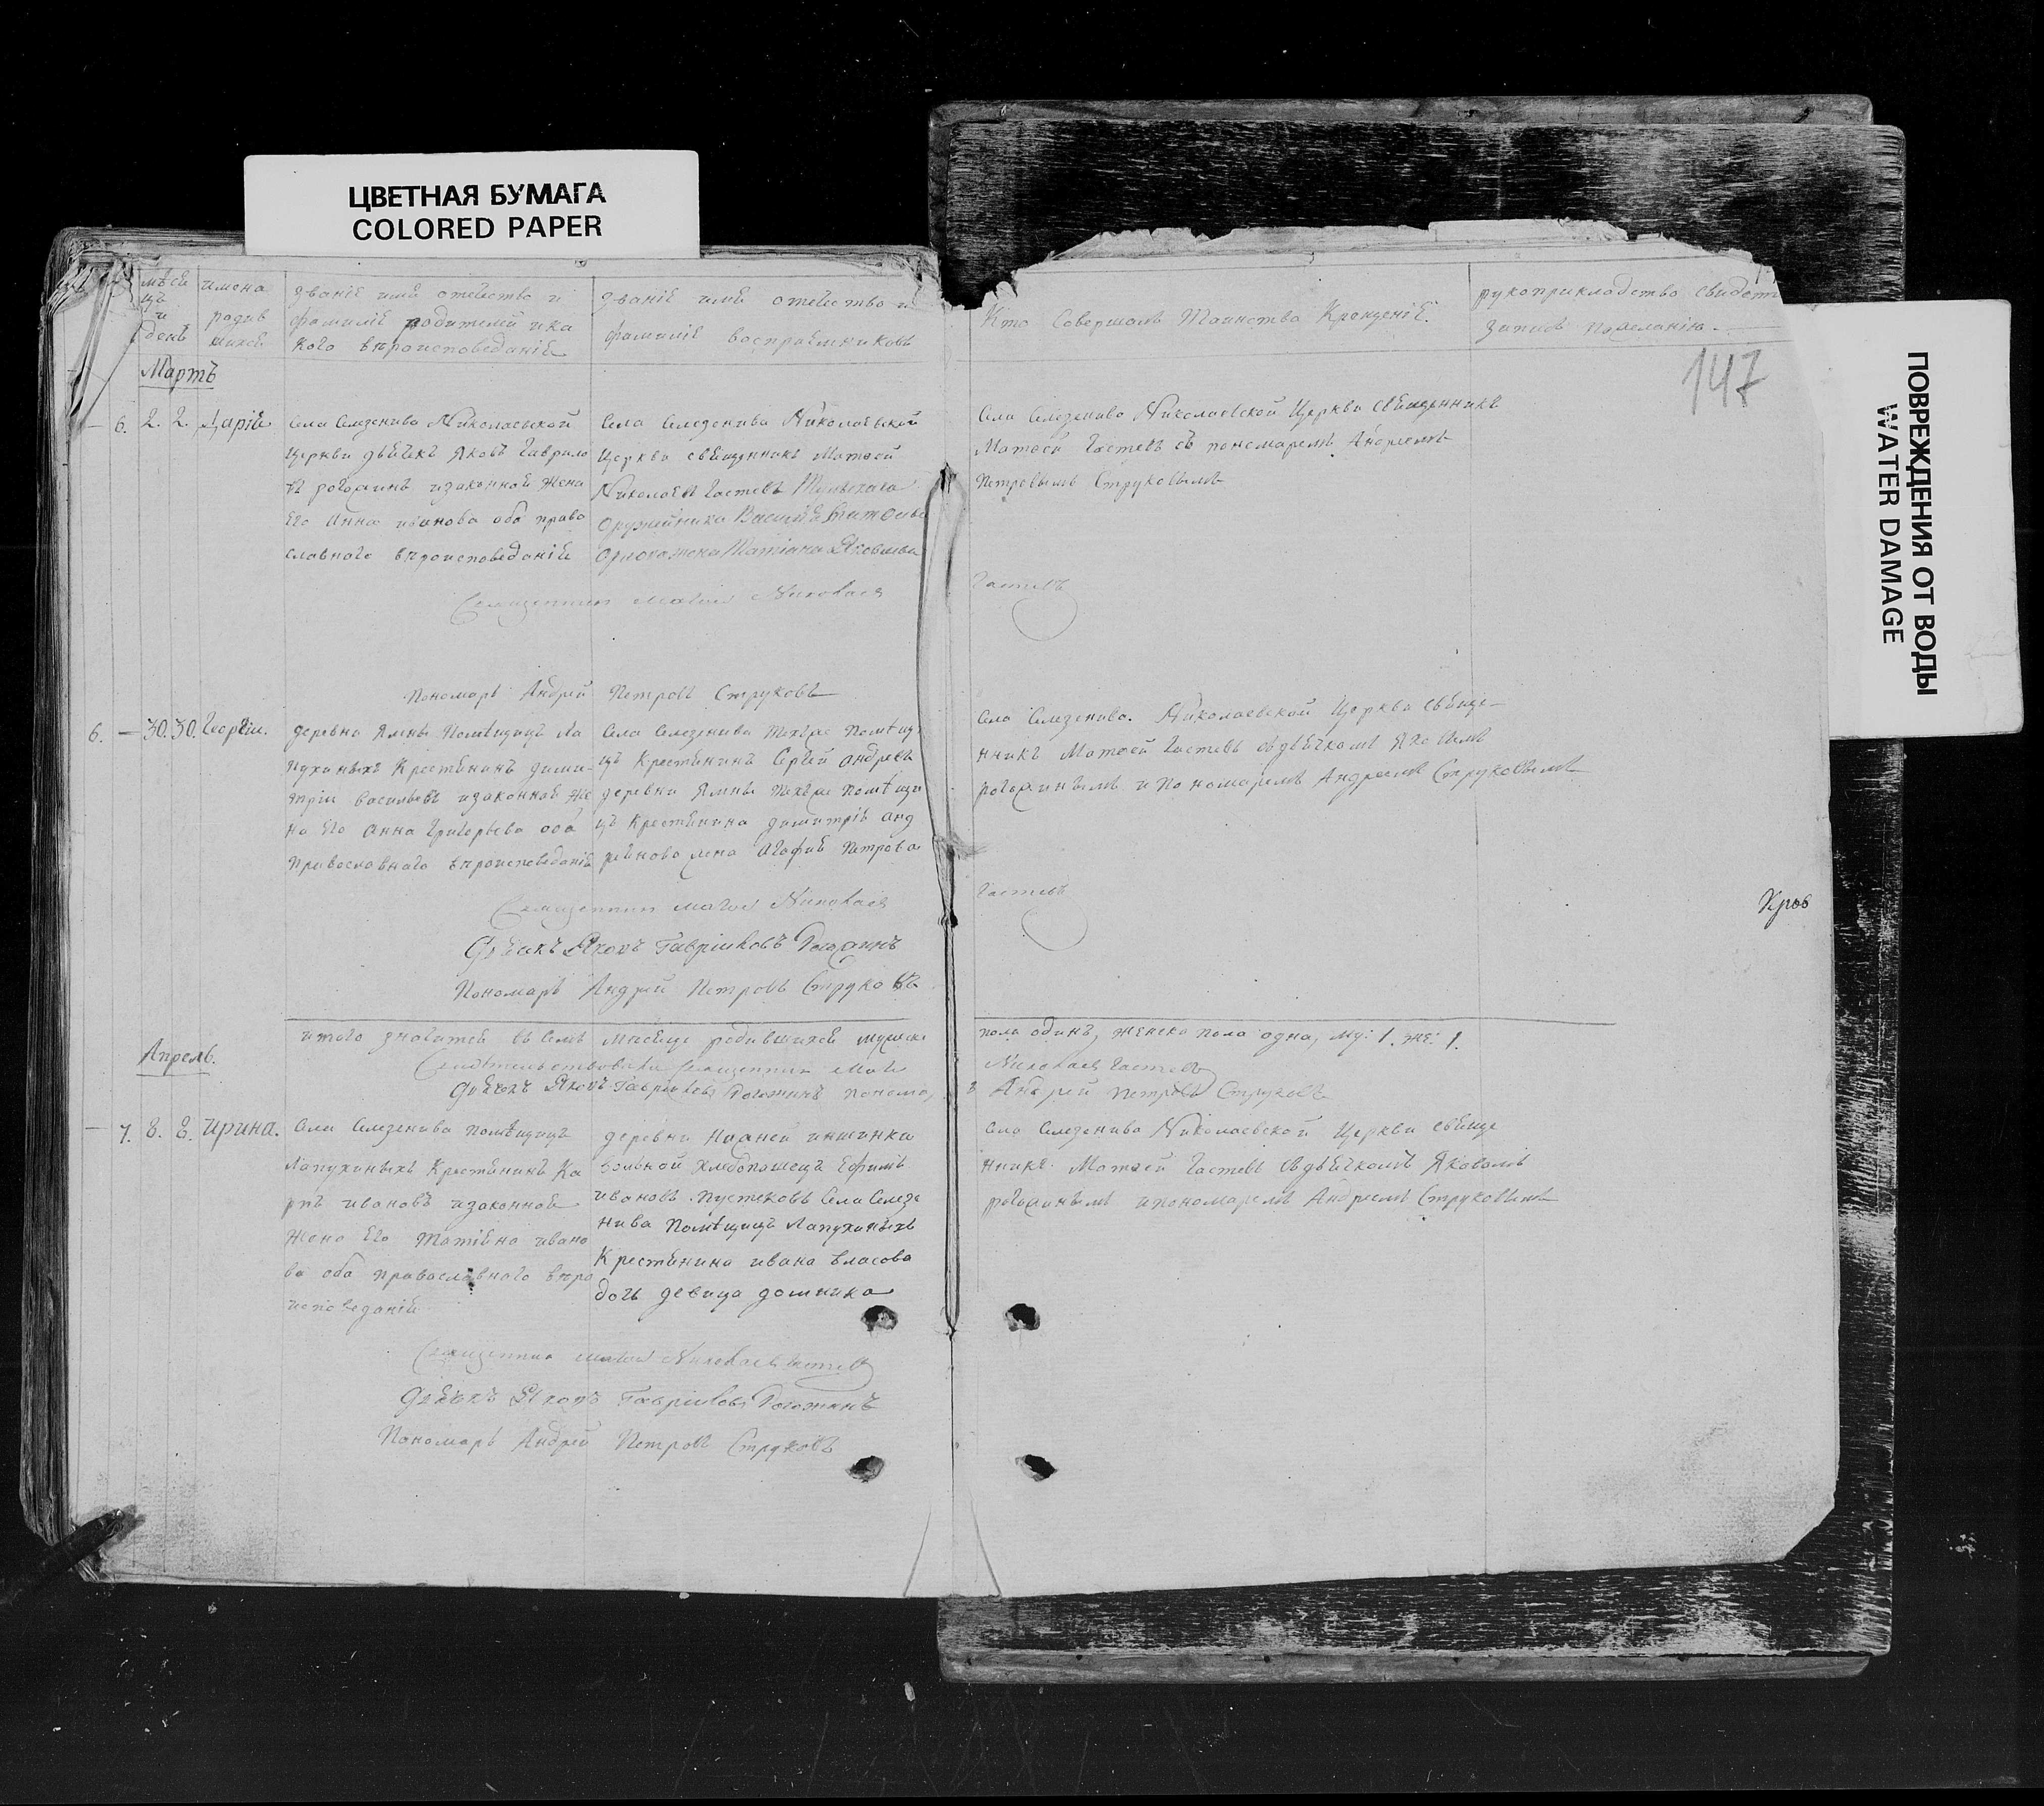 ЦВЕТНАЯ БУМАГА
COLORED PAPER
ПОВРЕЖДЕНИЯ ОТ ВОДЫ
WATER DAMAGE
мѣся
цъ
и
день
имена
родив
шихся
званіе имя отечество и
фамиліе родителей и ка
кого вѣроисповеданія
званіе имя отечество и
фамиліе воспрѣемниковъ
Кто Совершалъ Таинство Крещенія.
рукоприкладство свидет
записи пожеланію.
147
Мартъ
6. 2. 2. Дарія
Села Селезенива Николаевской
Церкви дьячекъ Яковъ Гаврило
въ рогожинъ изаконная жена
Его Анна иванова оба право
славнаго вѣроисповеданія
Села Селезенива Николаевской
Церкви священникъ Матфей
Николаевъ Гастевъ Тульскаго
оружейника Василья
жена Татіана Яковлева
Села Селезенива Николаевской Церкви священникъ
Матфей Гастевъ съ пономаремъ Андреемъ
Петровымъ Струковымъ
Священник Матвей Николаев
Гастевъ
Пономарь Андрей Петровъ Струковъ
6. — 30. 30. Георгіи.
деревни Ямны Помѣщицъ Ла
пухиныхъ Крестьянинъ дими
трій васильевъ изаконная же
на Его Анна Григорьева оба
Православнаго вѣроисповеданія
Села Селезенива техъже помѣщи
цъ Крестьянинъ Сергей андреевъ
деревни Ямны техъже помѣщи
цъ Крестьянина димитрія анд
реянова жена Агафія Петрова
Села Селезенива. Николаевской Церкви свяще-
нникъ Матфей Гастевъ съдьячкомъ Яковымъ
рогожинымъ и пономаремъ Андреемъ Струковымъ
Священник Матвей Николаев
Гастевъ
Дьячекъ Яковъ Гавриловъ Рогожинъ
Пономарь Андрей Петровъ Струковъ
Кров
итого значится въ семъ месяце родившихся мужска
пола одинъ, женска пола одна, му: 1. же: 1.
Свидетельствовали Священник Матвей
Николаев Гастев
Дьячекъ Яковъ Гавриловъ Рогожинъ пономар
ъ Андрей Петровъ Струковъ
Апрель.
7. 8. 8. Ирина.
Села Селезенива помѣщицъ
Лапухиныхъ Крестьянинъ Ка
рпъ ивановъ изаконная
жена Его Татіяна ивано
ва оба православнаго вѣро
исповеданія
деревни
вольной хлебопашецъ Ефимъ
ивановъ Пустековъ Села Селезе
нива Помѣщицъ Лапухиныхъ
Крестьянина ивана власова
дочь девица домника
Села Селезенива Николаевской Церкви свяще
нникъ Матфей Гастевъ съдьячкомъ Яковомъ
рогожинымъ ипономаремъ Андреемъ Струковымъ
Священник Матвей Николаев Гастев
Дьячекъ Яковъ Гавриловъ Рогожинъ
Пономарь Андрей Петровъ Струковъ